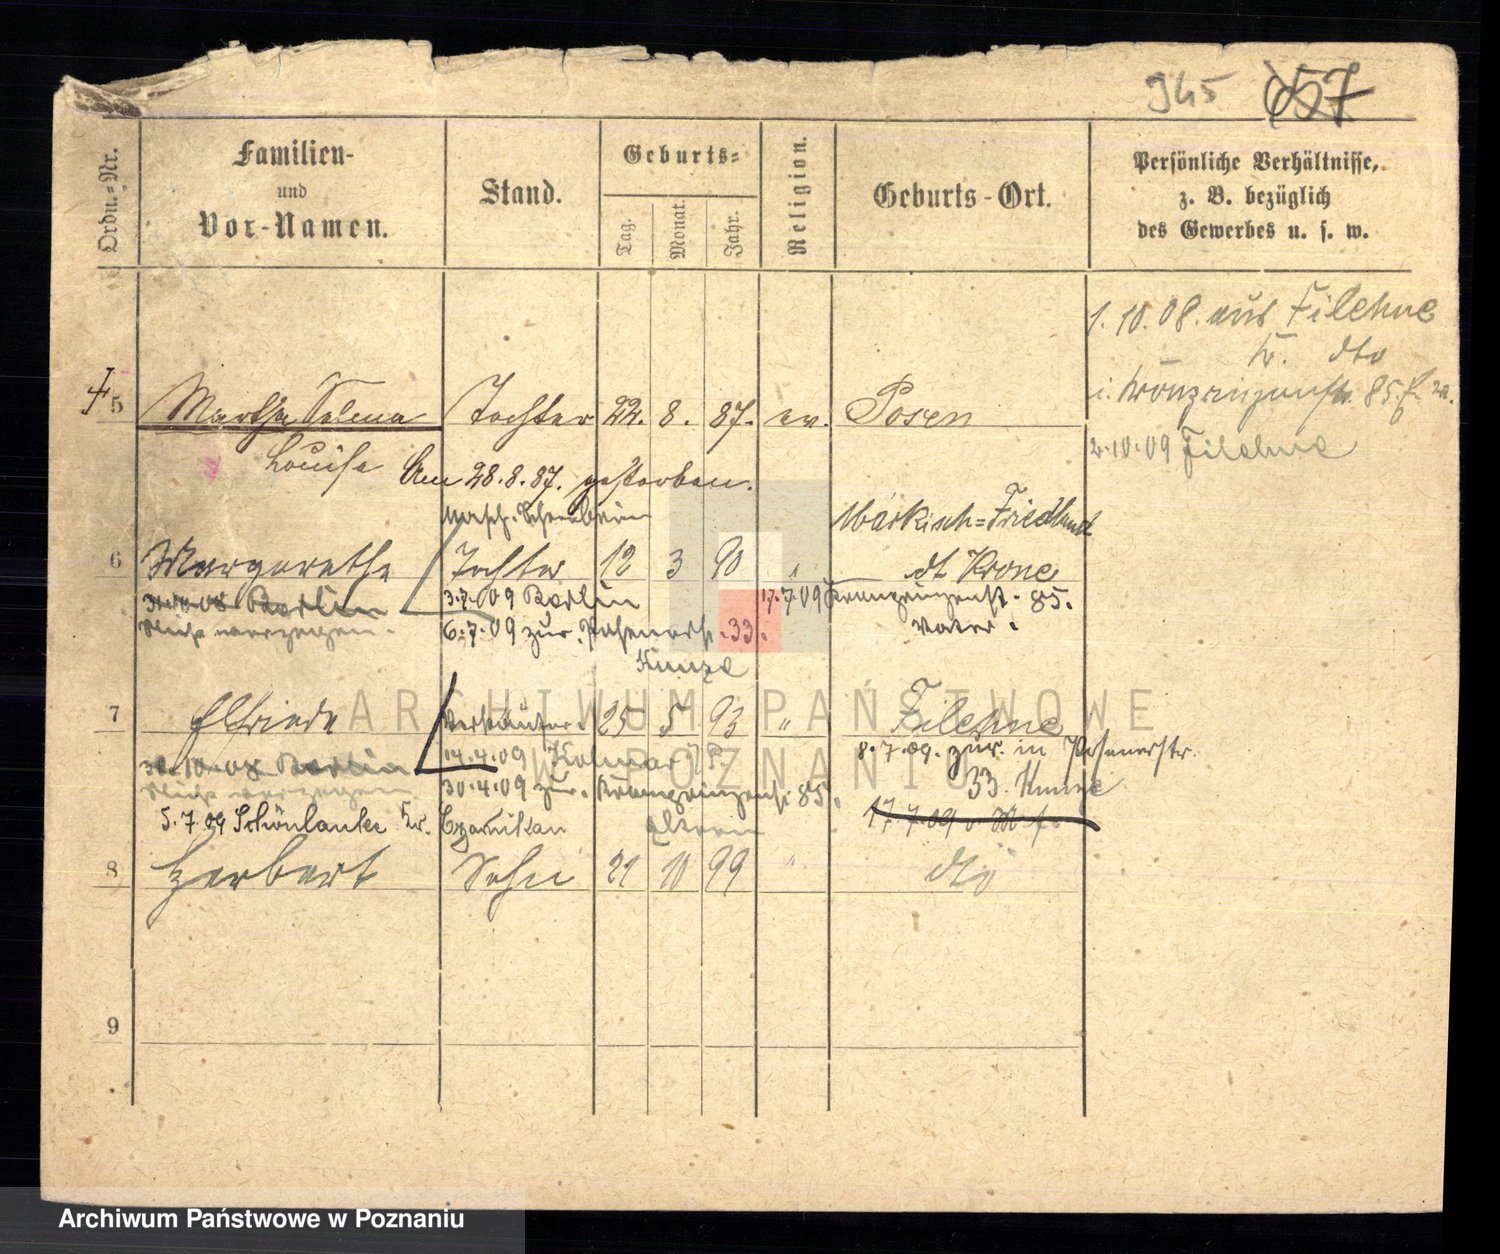 945 857
Ordn.-Nr.
Familien-
und
Vor-Namen.
Stand.
Geburts-
Tag.
Monat.
Jahr.
Religion.
Geburts-Ort.
Persönliche Verhältnisse,
z. B. bezüglich
des Gewerbes u. s. w.
1.10.08. aus Filehne
Kr. dto
i. Kronprinzenstr. 85.
5 Martha Selma Tochter 22. 8. 87. ev. Posen
2.10.09 Filehne
Louise Am 28.8.87. gestorben.
Masch. Schreiberin
Märkisch=Friedland
6 Margarethe Tochter 12 3 90 " dt Krone
Berlin 3.7.09 Berlin 17.7.09 Kronprinzenst. 85.
Nicht verzogen. 6.7.09 zur. Posenerstr. 33. Vater.
Kunze
7 Elfriede Verkäufer. 25 5 93 " Filehne
30.10.08 Berlin 14.4.09 Kolmar i/P. 8.7.09. zur. in Posenerstr.
Nicht verzogen 30.4.09 zur. Kronprinzenst. 85. 33. Kunze
5.7.09 Schönlanke Kr. Czarnikau Eltern 17.7.09
8 Herbert Sohn 21 10 99 " dto
9
ARCHIWUM PAŃSTWOWE
W POZNANIU
Archiwum Państwowe w Poznaniu